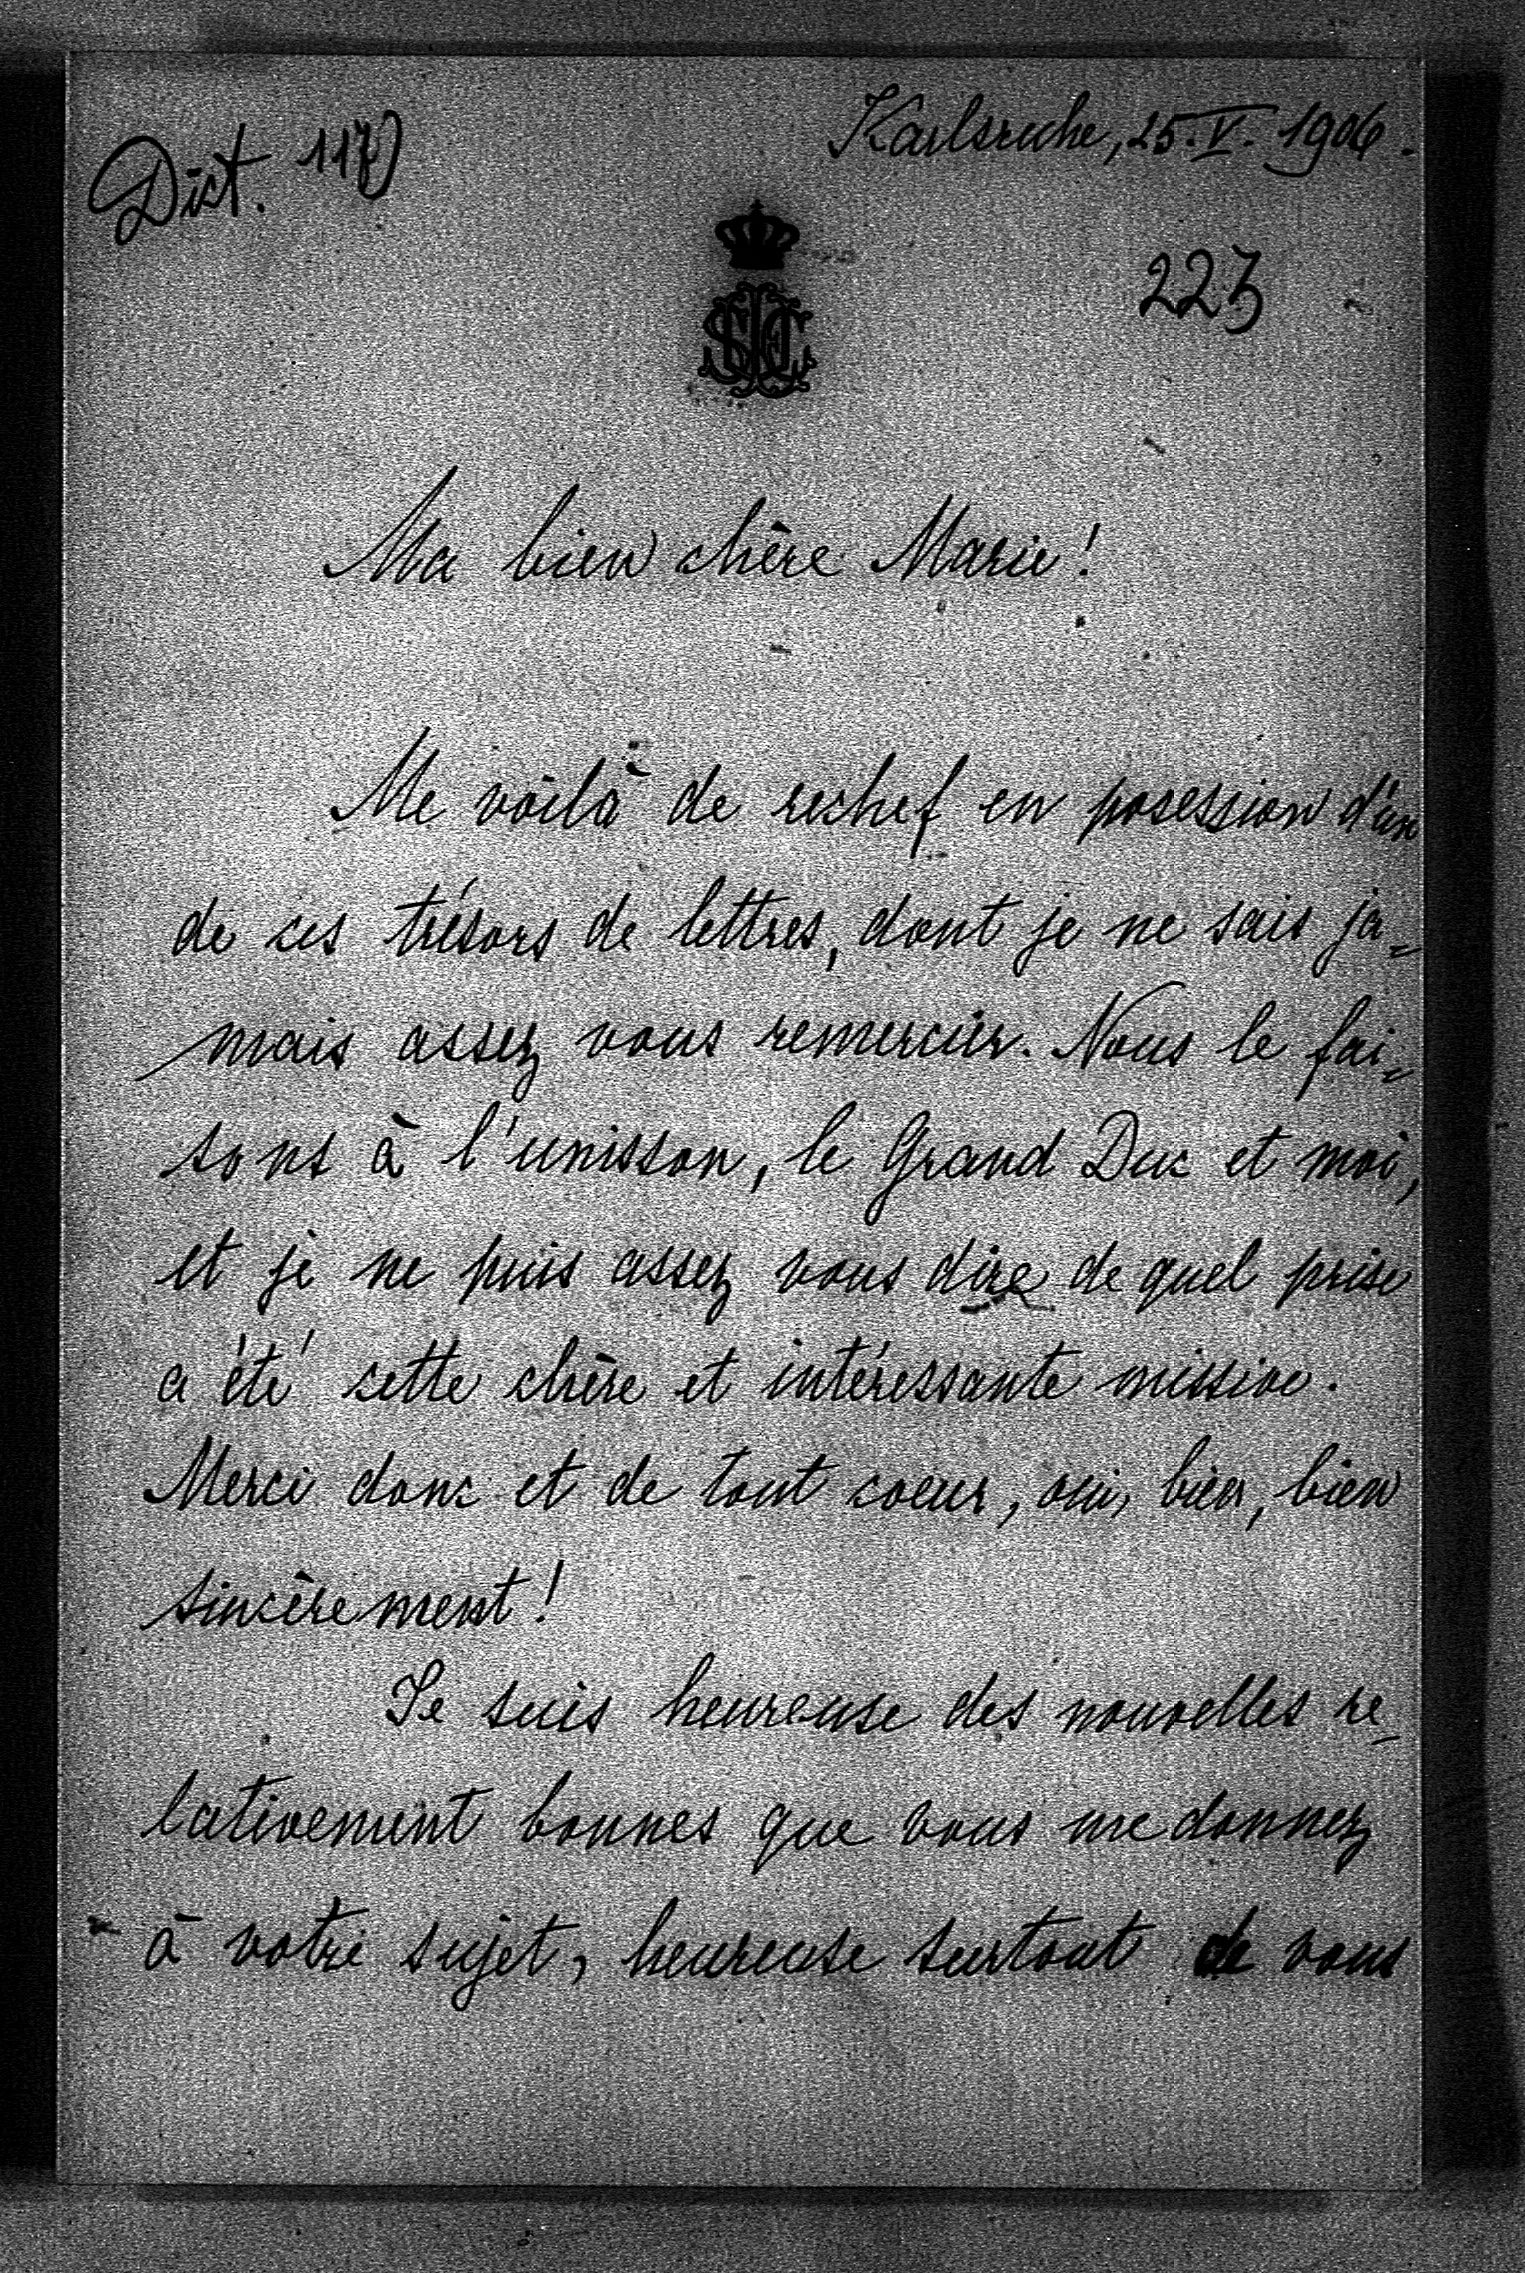 Dict. 117)
Karlsruhe, 25. V. 1906.
223
Ma bien chère Marie!
Me voilà de rechef en posession d'un
de ces trésors de lettres, dont je ne sais ja=
mais assez vous remercier. Nous le fai=
sons à l'unisson, le Grand Duc et moi,
et je ne puis assez vous dire de quel prise
a été cette chère et intéressante missive.
Merci donc et de tout coeur, oui, bien, bien
sincèrement!
Je suis heureuse des nouvelles re-
lativement bonnes que vous me donnez
à votre sujet, heureuse surtout de vous